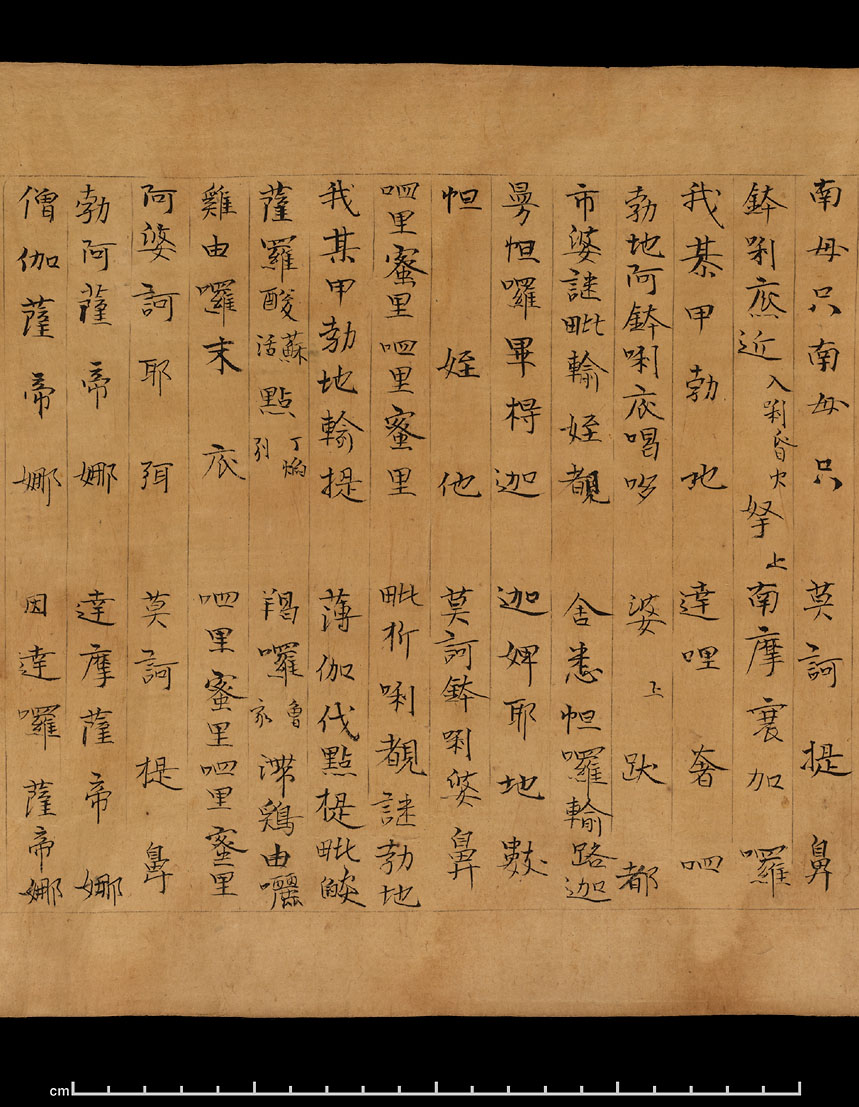 南毋只南毋只莫訶提鼻
鉢唎底近入唎昏火拏上南摩寠加囉
我某甲勃地達哩奢呬
勃地阿鉢唎底喝哆婆上跌都
市婆謎毗輸姪覩舍悉怛囉輸路迦
曼怛囉畢得迦迦婢耶地數
怛姪他莫訶鉢唎婆鼻
呬里蜜里呬里蜜里毗折唎覩謎勃地
我某甲勃地輸提薄伽伐點提毗㷔
薩羅酸蘇活點丁焰羯囉魯家滯雞由囇
雞由囉末底呬里蜜里呬里蜜里
阿婆訶耶弭莫訶提鼻
勃阿薩帝娜達摩薩帝娜
僧伽薩帝娜因達囉薩帝娜